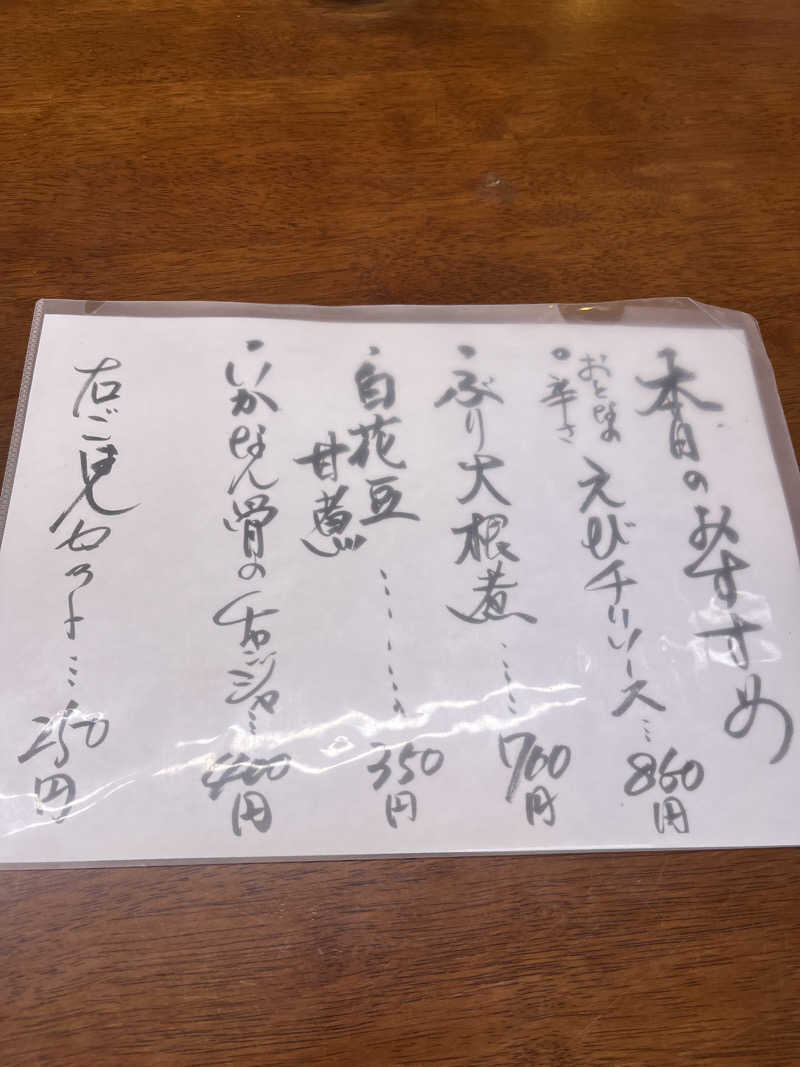 本日のおすすめ
・おとなの辛さ えびチリソース…860円
・ぶり大根煮……700円
・白花豆甘煮………350円
・いかなん骨のチャンジャ…400円
右ごはんセット…250円